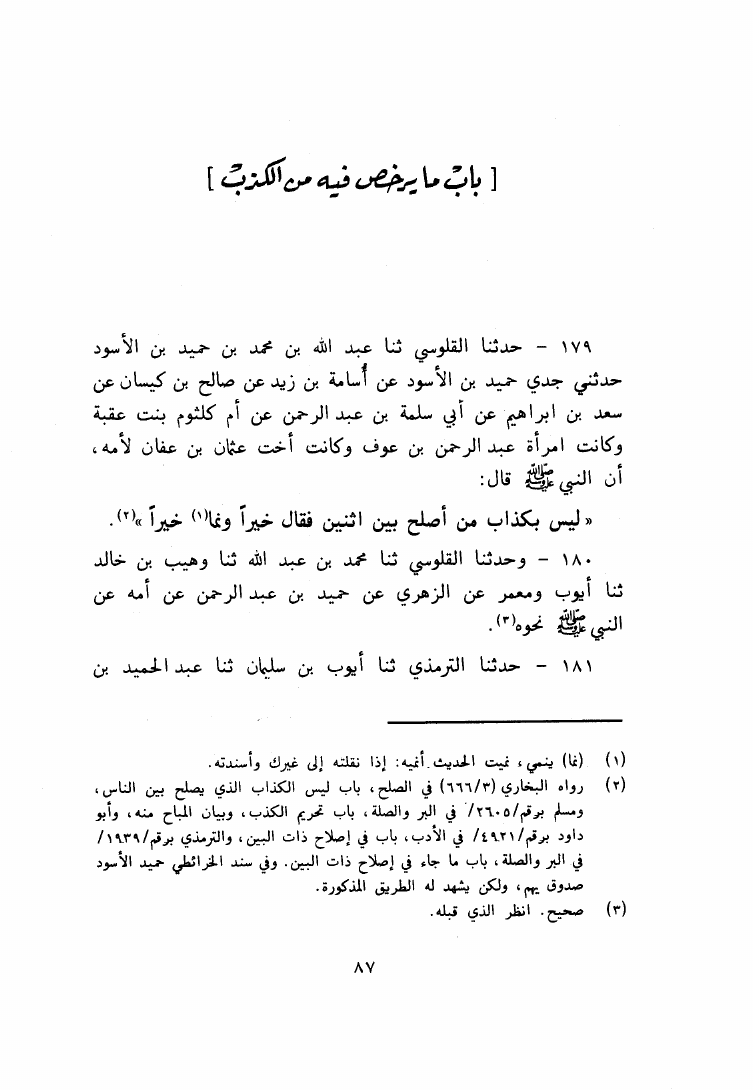 [ باب ما يرخص فيه من الكذب ]
١٧٩ - حدثنا القلوسي ثنا عبد الله بن محمد بن حميد بن الأسود
حدثني جدي حميد بن الأسود عن أسامة بن زيد عن صالح بن كيسان عن
سعد بن ابراهيم عن أبي سلمة بن عبد الرحمن عن أم كلثوم بنت عقبة
وكانت امرأة عبد الرحمن بن عوف وكانت أخت عثمان بن عفان لأمه،
أن النبي ﷺ قال:
« ليس بكذاب من أصلح بين اثنين فقال خيراً ونما(١) خيراً »(٢).
١٨٠ - وحدثنا القلوسي ثنا محمد بن عبد الله ثنا وهيب بن خالد
ثنا أيوب ومعمر عن الزهري عن حميد بن عبد الرحمن عن أمه عن
النبي ﷺ نحوه(٣).
١٨١ - حدثنا الترمذي ثنا أيوب بن سليمان ثنا عبد الحميد بن
(١) (نما) ينمي، نميت الحديث أنميه: إذا نقلته إلى غيرك وأسندته.
(٢) رواه البخاري (٦٦٦/٣) في الصلح، باب ليس الكذاب الذي يصلح بين الناس،
ومسلم برقم/٢٦٠٥/ في البر والصلة، باب تحريم الكذب، وبيان المباح منه، وأبو
داود برقم/٤٩٢١/ في الأدب، باب في إصلاح ذات البين، والترمذي برقم/١٩٣٩/
في البر والصلة، باب ما جاء في إصلاح ذات البين. وفي سند الخرائطي حميد الأسود
صدوق يهم، ولكن يشهد له الطريق المذكورة.
(٣) صحيح. انظر الذي قبله.
٨٧